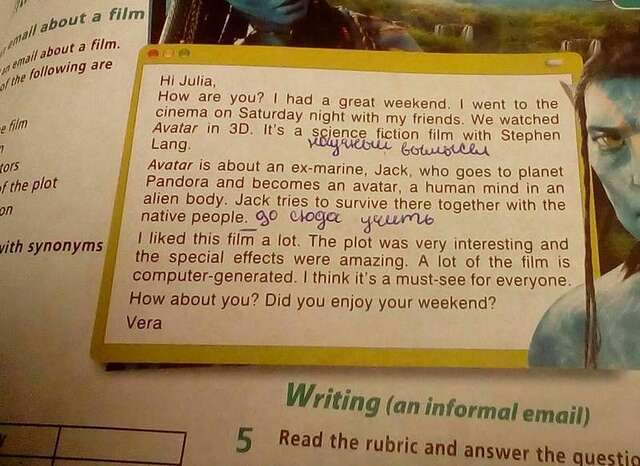 email about a film
an email about a film.
of the following are
e film
tors
f the plot
on
with synonyms
Hi Julia,
How are you? I had a great weekend. I went to the
cinema on Saturday night with my friends. We watched
Avatar in 3D. It's a science fiction film with Stephen
Lang.
научный вымысел
Avatar is about an ex-marine, Jack, who goes to planet
Pandora and becomes an avatar, a human mind in an
alien body. Jack tries to survive there together with the
native people. до сюда учить
I liked this film a lot. The plot was very interesting and
the special effects were amazing. A lot of the film is
computer-generated. I think it's a must-see for everyone.
How about you? Did you enjoy your weekend?
Vera
Writing (an informal email)
5 Read the rubric and answer the questio